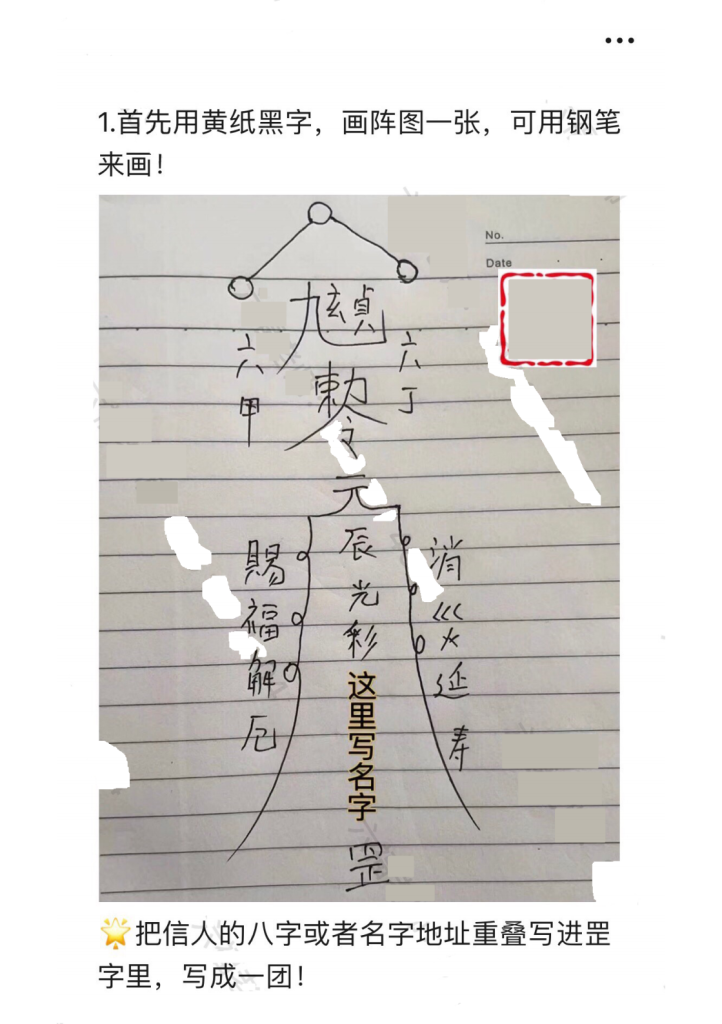 1.首先用黄纸黑字，画阵图一张，可用钢笔
来画！
No.
Date
六甲
六丁
敕令
元辰光彩
这里写名字
罡
賜福解厄
消災延寿
🌟把信人的八字或者名字地址重叠写进罡
字里，写成一团！